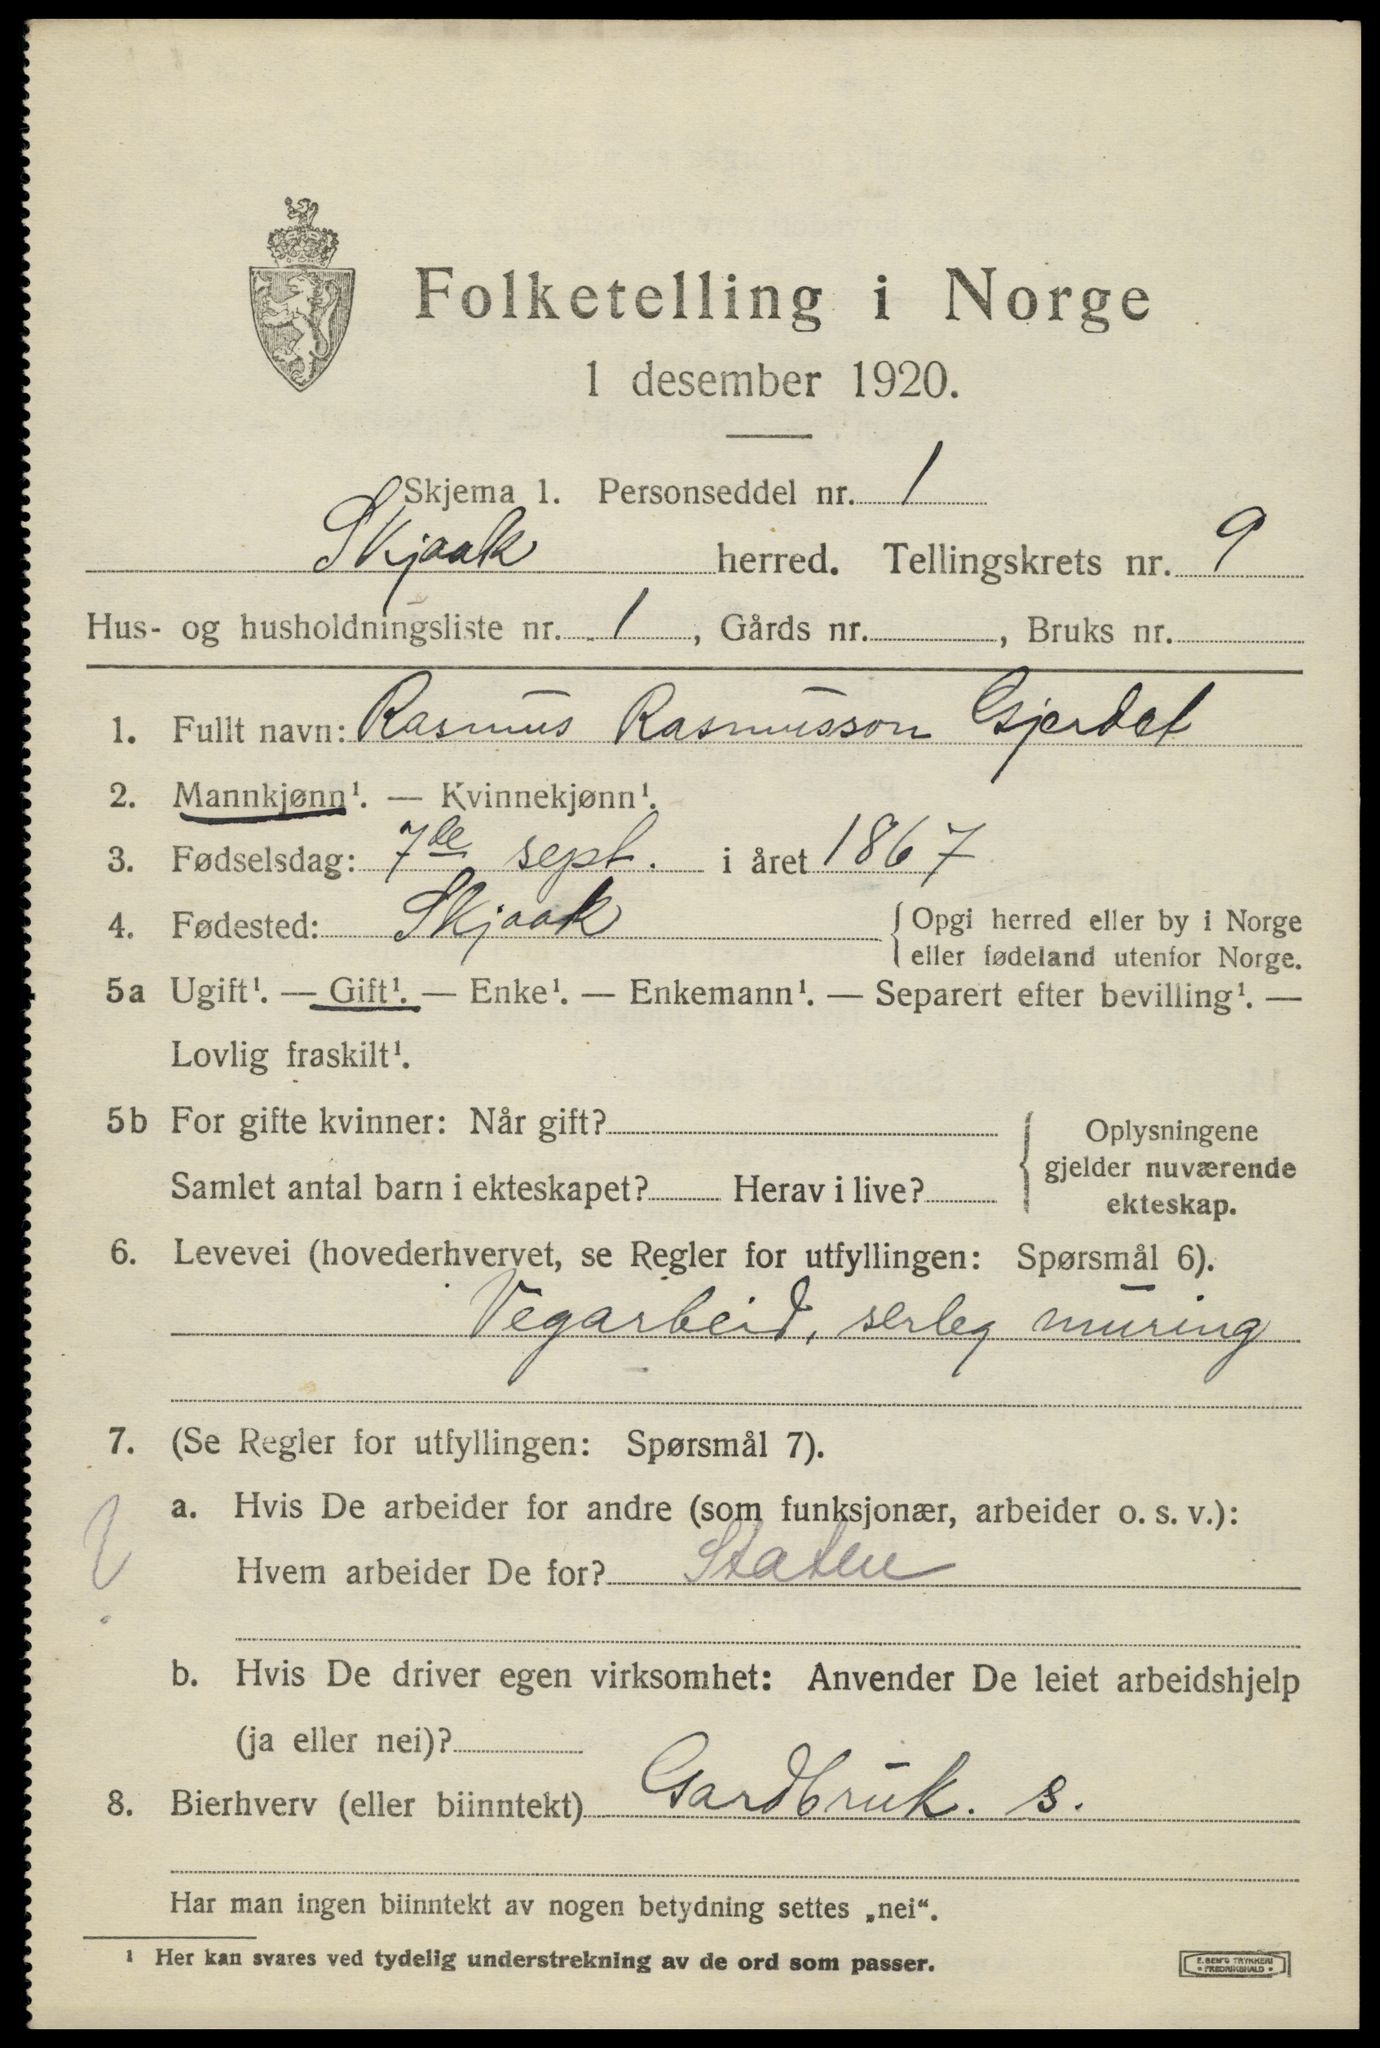 Folketelling i Norge
1 desember 1920.
Skjema 1. Personseddel nr. 1
Skjaak herred. Tellingskrets nr. 9
Hus- og husholdningsliste nr. 1, Gårds nr. , Bruks nr.
1. Fullt navn: Rasmus Rasmusson Gjerdet
2. Mannkjønn¹. — Kvinnekjønn¹.
3. Fødselsdag: 7de sept. i året 1867
4. Fødested: Skjaak { Opgi herred eller by i Norge
eller fødeland utenfor Norge.
5a Ugift¹. — Gift¹. — Enke¹. — Enkemann¹. — Separert efter bevilling¹. —
Lovlig fraskilt¹.
5b For gifte kvinner: Når gift?
Samlet antal barn i ekteskapet? Herav i live?
Oplysningene
gjelder nuværende
ekteskap.
6. Levevei (hovederhvervet, se Regler for utfyllingen: Spørsmål 6).
Vegarbeid, serleg muring
7. (Se Regler for utfyllingen: Spørsmål 7).
a. Hvis De arbeider for andre (som funksjonær, arbeider o. s. v.):
Hvem arbeider De for? Staten
b. Hvis De driver egen virksomhet: Anvender De leiet arbeidshjelp
(ja eller nei)?
8. Bierhverv (eller biinntekt) Gardbruk. s.
Har man ingen biinntekt av nogen betydning settes „nei“.
¹ Her kan svares ved tydelig understrekning av de ord som passer.
FREDRIKSHALD